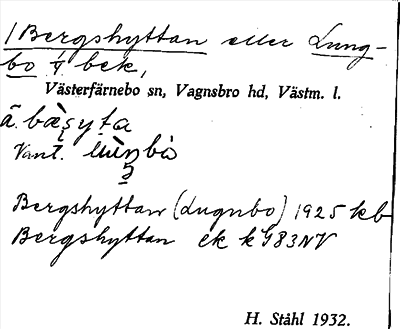 / Bergshyttan eller Lung-
bo 1/4 bek,
Västerfärnebo sn, Vagnsbro hd, Västm. l.
Bergshyttan (Lugnbo) 1925 kb
Bergshyttan ek k G83NV
H. Ståhl 1932.